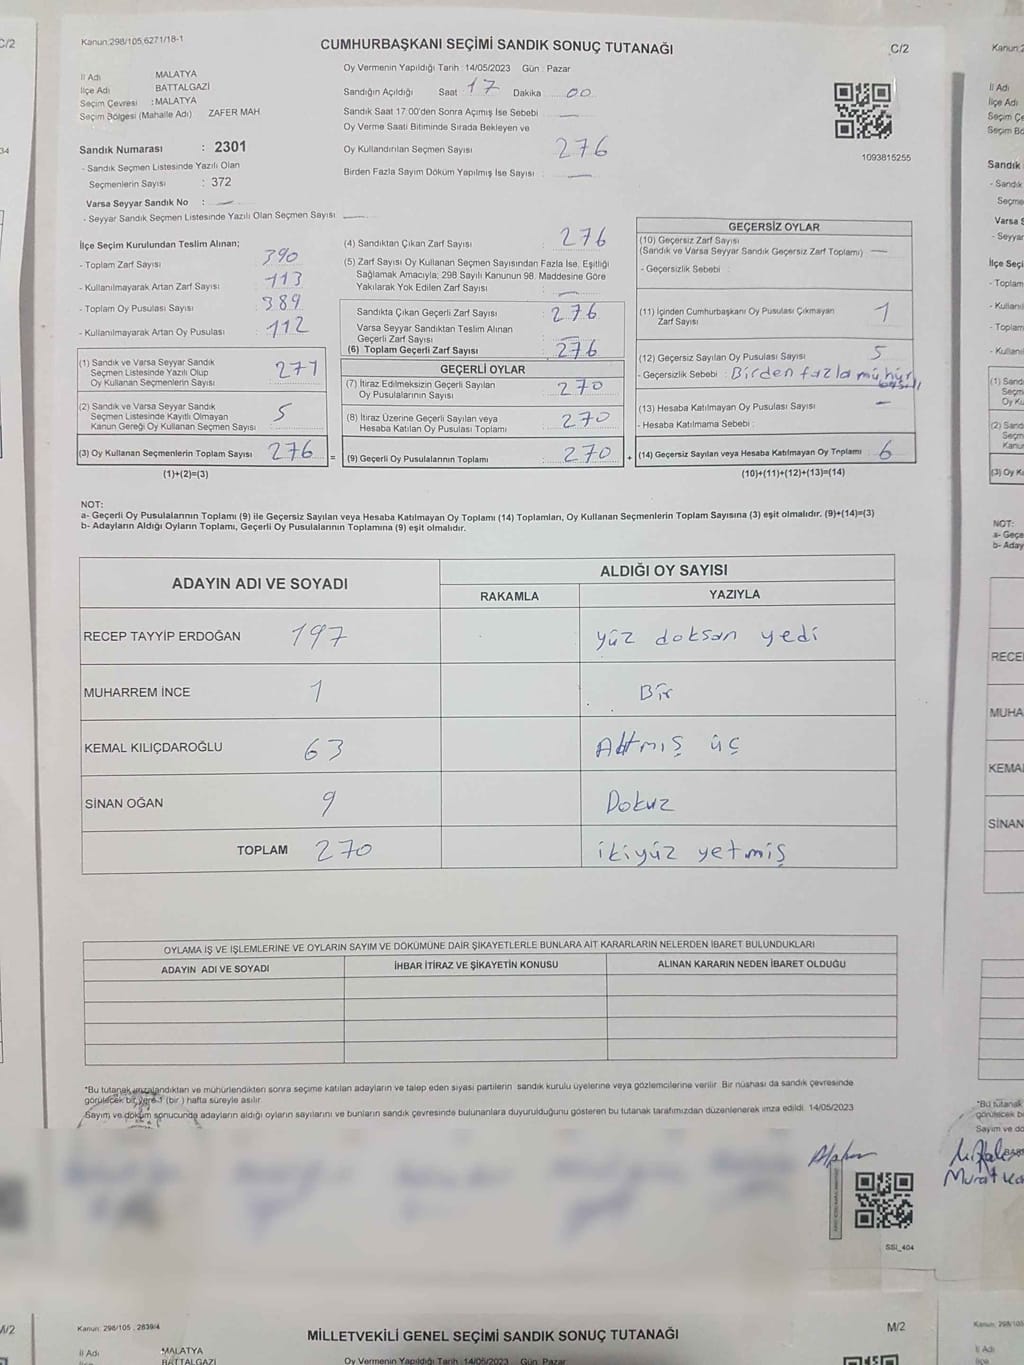 C/2
Kanun:298/105,6271/18-1
CUMHURBAŞKANI SEÇİMİ SANDIK SONUÇ TUTANAĞI
C/2
İl Adı MALATYA
İlçe Adı BATTALGAZİ
Seçim Çevresi : MALATYA
Seçim Bölgesi (Mahalle Adı) ZAFER MAH
Oy Vermenin Yapıldığı Tarih : 14/05/2023 Gün : Pazar
Sandığın Açıldığı Saat 17 Dakika 00
Sandık Saat 17:00'den Sonra Açımış İse Sebebi
Oy Verme Saati Bitiminde Sırada Bekleyen ve
Oy Kullandırılan Seçmen Sayısı 276
Birden Fazla Sayım Döküm Yapılmış İse Sayısı :
1093815255
Sandık Numarası : 2301
- Sandık Seçmen Listesinde Yazılı Olan
Seçmenlerin Sayısı : 372
Varsa Seyyar Sandık No :
- Seyyar Sandık Seçmen Listesinde Yazılı Olan Seçmen Sayısı
İlçe Seçim Kurulundan Teslim Alınan;
- Toplam Zarf Sayısı 390
- Kullanılmayarak Artan Zarf Sayısı : 113
- Toplam Oy Pusulası Sayısı 389
- Kullanılmayarak Artan Oy Pusulası : 112
(1) Sandık ve Varsa Seyyar Sandık
Seçmen Listesinde Yazılı Olup
Oy Kullanan Seçmenlerin Sayısı 271
(2) Sandık ve Varsa Seyyar Sandık
Seçmen Listesinde Kayıtlı Olmayan
Kanun Gereği Oy Kullanan Seçmen Sayısı 5
(3) Oy Kullanan Seçmenlerin Toplam Sayısı 276 =
(1)+(2)=(3)
(4) Sandıktan Çıkan Zarf Sayısı 276
(5) Zarf Sayısı Oy Kullanan Seçmen Sayısından Fazla İse, Eşitliği
Sağlamak Amacıyla; 298 Sayılı Kanunun 98. Maddesine Göre
Yakılarak Yok Edilen Zarf Sayısı
Sandıkta Çıkan Geçerli Zarf Sayısı 276
Varsa Seyyar Sandıktan Teslim Alınan
Geçerli Zarf Sayısı
(6) Toplam Geçerli Zarf Sayısı 276
GEÇERLİ OYLAR
(7) İtiraz Edilmeksizin Geçerli Sayılan
Oy Pusulalarının Sayısı 270
(8) İtiraz Üzerine Geçerli Sayılan veya
Hesaba Katılan Oy Pusulası Toplamı 270
(9) Geçerli Oy Pusulalarının Toplamı 270 +
GEÇERSİZ OYLAR
(10) Geçersiz Zarf Sayısı
(Sandık ve Varsa Seyyar Sandık Geçersiz Zarf Toplamı)
- Geçersizlik Sebebi :
(11) İçinden Cumhurbaşkanı Oy Pusulası Çıkmayan
Zarf Sayısı 1
(12) Geçersiz Sayılan Oy Pusulası Sayısı 5
- Geçersizlik Sebebi : Birden fazla mühür
(13) Hesaba Katılmayan Oy Pusulası Sayısı
- Hesaba Katılmama Sebebi :
(14) Geçersiz Sayılan veya Hesaba Katılmayan Oy Toplamı 6
(10)+(11)+(12)+(13)=(14)
NOT:
a- Geçerli Oy Pusulalarının Toplamı (9) ile Geçersiz Sayılan veya Hesaba Katılmayan Oy Toplamı (14) Toplamları, Oy Kullanan Seçmenlerin Toplam Sayısına (3) eşit olmalıdır. (9)+(14)=(3)
b- Adayların Aldığı Oyların Toplamı, Geçerli Oy Pusulalarının Toplamına (9) eşit olmalıdır.
ADAYIN ADI VE SOYADI
ALDIĞI OY SAYISI
RAKAMLA YAZIYLA
RECEP TAYYİP ERDOĞAN 197 yüz doksan yedi
MUHARREM İNCE 1 Bir
KEMAL KILIÇDAROĞLU 63 Altmış üç
SİNAN OĞAN 9 Dokuz
TOPLAM 270 ikiyüz yetmiş
OYLAMA İŞ VE İŞLEMLERİNE VE OYLARIN SAYIM VE DÖKÜMÜNE DAİR ŞİKAYETLERLE BUNLARA AİT KARARLARIN NELERDEN İBARET BULUNDUKLARI
ADAYIN ADI VE SOYADI
İHBAR İTİRAZ VE ŞİKAYETİN KONUSU
ALINAN KARARIN NEDEN İBARET OLDUĞU
*Bu tutanak imzalandıktan ve mühürlendikten sonra seçime katılan adayların ve talep eden siyasi partilerin sandık kurulu üyelerine veya gözlemcilerine verilir. Bir nüshası da sandık çevresinde
görülecek bir yere 1 (bir ) hafta süreyle asılır.
Sayım ve döküm sonucunda adayların aldığı oyların sayılarını ve bunların sandık çevresinde bulunanlara duyurulduğunu gösteren bu tutanak tarafımızdan düzenlenerek imza edildi. 14/05/2023
SSİ_404
M/2
Kanun: 298/105 , 2839/4
MİLLETVEKİLİ GENEL SEÇİMİ SANDIK SONUÇ TUTANAĞI
M/2
İl Adı MALATYA
İlçe Adı BATTALGAZİ
Oy Vermenin Yapıldığı Tarih : 14/05/2023 Gün : Pazar